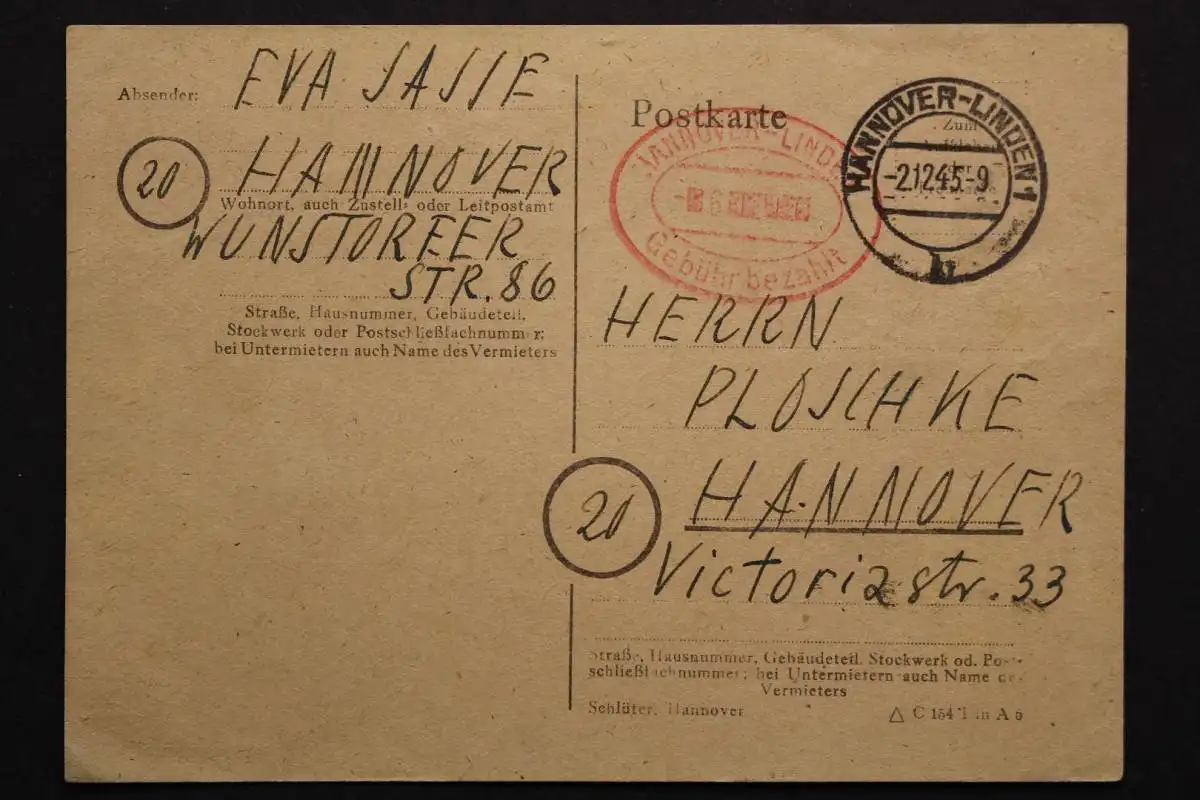 Absender: EVA SASSE
20 HANNOVER
Wohnort, auch Zustell- oder Leitpostamt
WUNSTORFER
STR. 86
Straße, Hausnummer, Gebäudeteil,
Stockwerk oder Postschließfachnummer;
bei Untermietern auch Name des Vermieters
Postkarte
HANNOVER-LINDEN
6
Gebühr bezahlt
HANNOVER-LINDEN 1
-2.12.45-9
Zum
HERRN
PLOSCHKE
20 HANNOVER
Victoriastr. 33
Straße, Hausnummer, Gebäudeteil, Stockwerk od. Post-
schließfachnummer; bei Untermietern auch Name des
Vermieters
Schlüter, Hannover
△ C 154